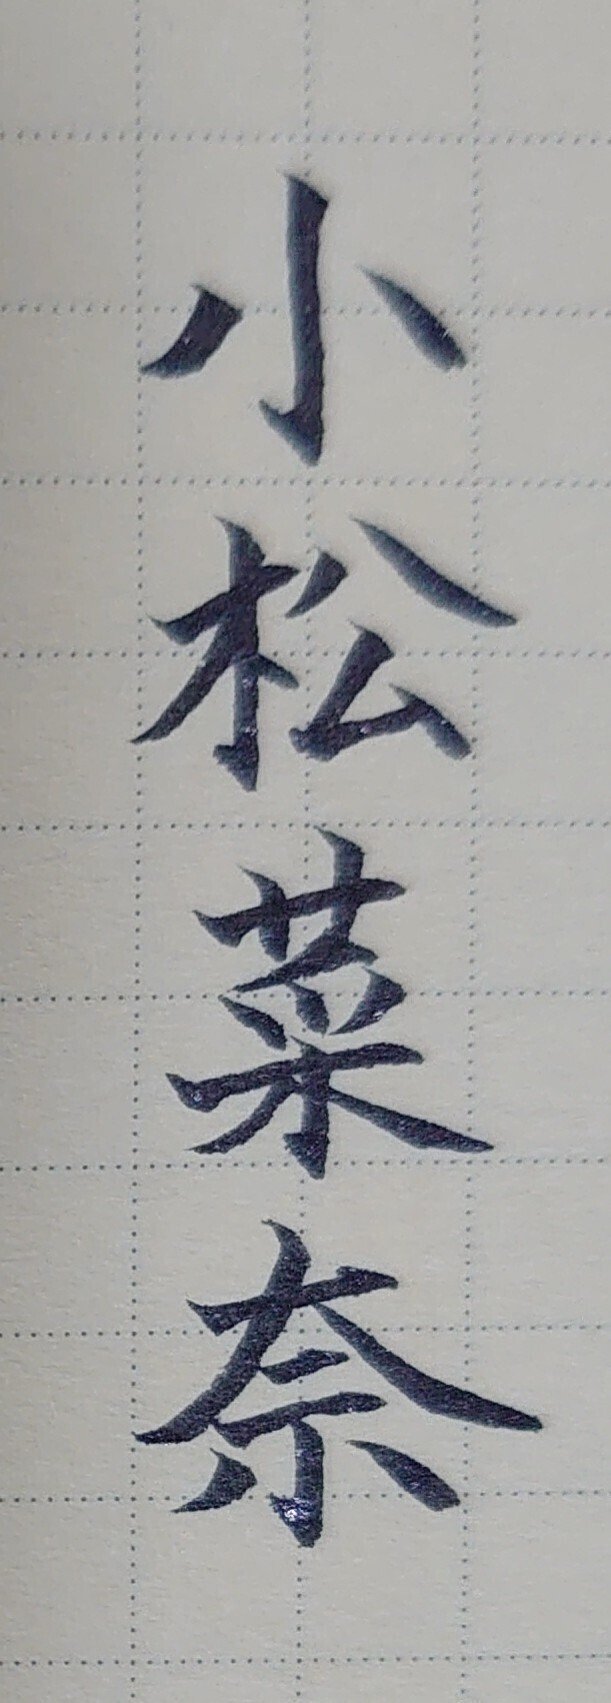 小松菜奈